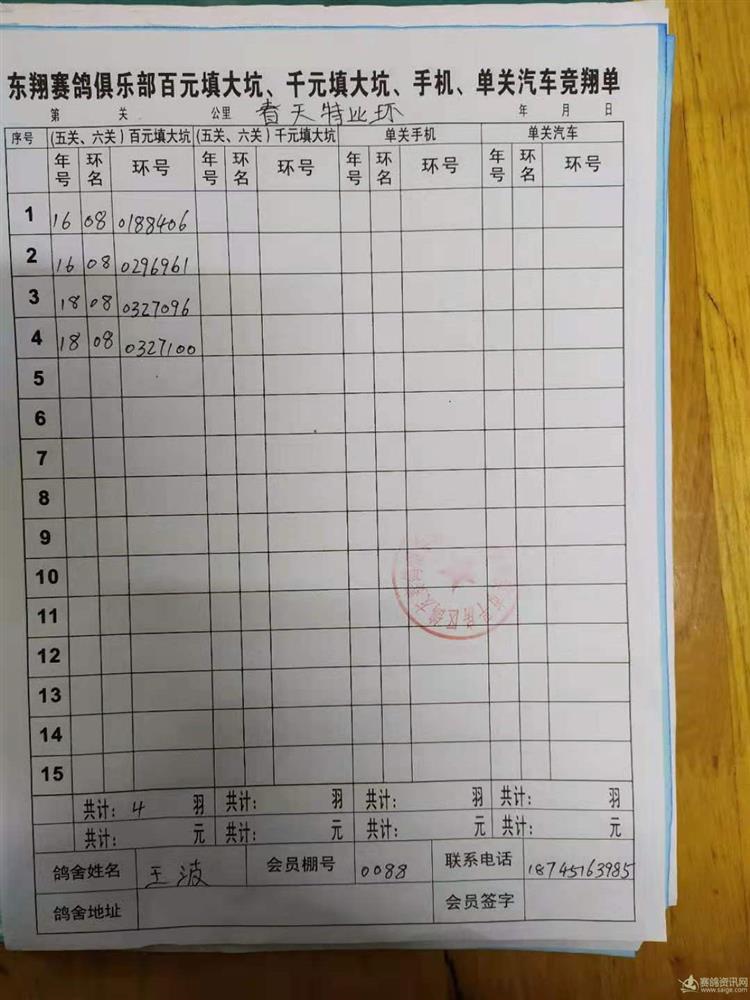 东翔赛鸽俱乐部百元填大坑、千元填大坑、手机、单关汽车竞翔单
第 关 公里 春天特比环 年 月 日
序号 (五关、六关)百元填大坑 (五关、六关)千元填大坑 单关手机 单关汽车
年号 环名 环号 年号 环名 环号 年号 环名 环号 年号 环名 环号
1 16 08 0188406
2 16 08 0296961
3 18 08 0327096
4 18 08 0327100
5
6
7
8
9
10
11
12
13
14
15
共计: 4 羽 共计: 羽 共计: 羽 共计: 羽
共计: 元 共计: 元 共计: 元 共计: 元
鸽舍姓名 王波 会员棚号 0088 联系电话 18745163985
鸽舍地址 会员签字
赛鸽资讯网
www.saige.com